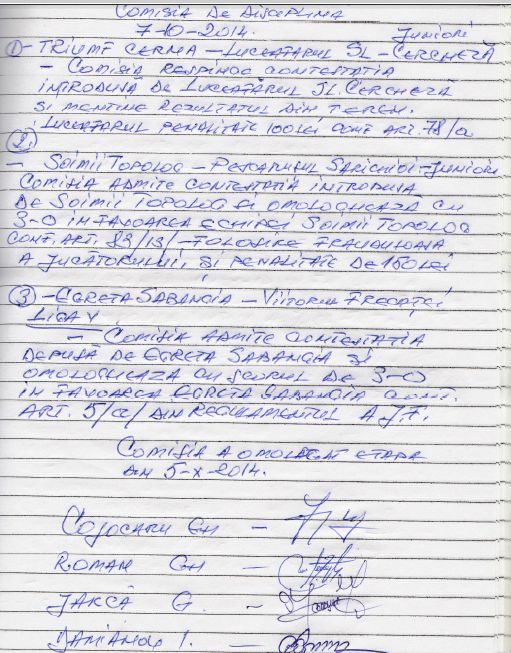 COMISIA DE DISCIPLINA
7-10-2014. JUNIORI
1 - TRIUMF CERNA - LUCEAFARUL SL - CERCHEZĂ
- COMISIA RESPINGE CONTESTATIA
INTRODUSĂ DE LUCEAFĂRUL SL. CERCHEZĂ
SI MENTINE REZULTATUL DIN TEREN.
LUCEAFARUL PENALITATE 100 LEI CONF ART. 78/a
2.
- SOIMII TOPOLOG - PESCARUSUL SARICHIOI - JUNIORI
COMISIA ADMITE CONTESTATIA INTRODUSA
DE SOIMII TOPOLOG SI OMOLOGHEAZA CU
3-0 IN FAVOAREA ECHIPEI SOIMII TOPOLOG
CONF. ART. 83/13/ - FOLOSIRE FRAUDULOASA
A JUCATORULUI, SI PENALITATE DE 150 LEI
3 - EGRETA SABANGIA - VIITORUL FRECAȚEI
LIGA V
- COMISIA ADMITE CONTESTATIA
DEPUSĂ DE EGRETA SABANGIA SI
OMOLOGHEAZA CU SCORUL DE 3-0
IN FAVOAREA EGRETA SABANGIA CONF.
ART. 5/a/ DIN REGULAMENTUL A.J.F.
COMISIA A OMOLOGAT ETAPA
DIN 5-X-2014.
COJOCARU GH -
ROMAN GH -
JAKCĂ G. -
DAMIANOV I. -